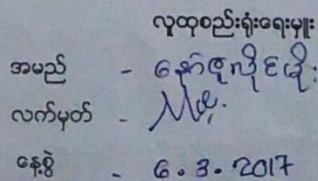 လူထုစည်းရုံးရေးမှူး
အမည် - နော်ဇူလိုင်မိုး
လက်မှတ် -
နေ့စွဲ - 6.3.2017